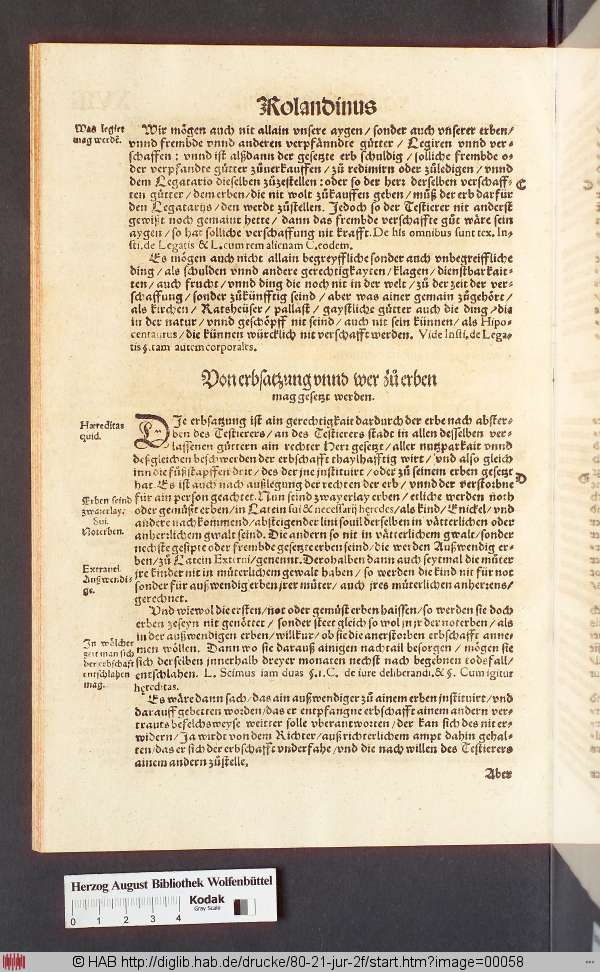 Rolandinus
Was legirt
mag werdē.
Wir mögen auch nit allain vnsere aygen/ sonder auch vnserer erben/
vnnd frembde vnnd anderen verpfänndte gütter/ Legiren vnnd ver-
schaffen: vnnd ist alßdann der gesetzte erb schuldig/ solliche frembde o-
der verpfandte gütter zůuerkauffen/ zů redimirn oder zůledigen/ vnnd
dem Legatario dieselben zůzestellen: oder so der herꝛ derselben verschaff-
ten gütter/ dem erben/ die nit wolt zůkauffen geben/ můß der erb darfür
den Legatarijs/ den werdt zůstellen. Jedoch so der Testierer nit anderst
gewißt noch gemaint hette/ dann das frembde verschaffte gůt wäre sein
aygen/ so hat solliche verschaffung nit krafft. De his omnibus sunt tex. In-
sti. de Legatis & L. cum rem alienam C. eodem.
Es mögen auch nicht allain begreyffliche sonder auch vnbegreiffliche
ding/ als schulden vnnd andere gerechtigkayten/ klagen/ dienstbarkait-
ten/ auch frucht/ vnnd ding die noch nit in der welt/ zů der zeit der ver-
schaffung/ sonder zůkünfftig seind/ aber was ainer gemain zůgehört/
als kirchen/ Ratsheüser/ pallast/ gaystliche gütter auch die ding/ die
in der natur/ vnnd geschöpff nit seind/ auch nit sein künnen/ als Hipo-
centaurus/ die künnen würcklich nit verschafft werden. Vide Insti. de Lega-
tis §. tam autem corporales.
Von erbsatzung vnnd wer zů erben
mag gesetzt werden.
Hæreditas
quid.
DJe erbsatzung ist ain gerechtigkait dardurch der erbe nach abster-
ben des Testierers/ an des Testierers stadt in allen desselben ver-
lassenen güttern ain rechter Herꝛ gesetzt/ aller nutzparkait vnnd
deßgleichen beschwerden der erbschafft thaylhafftig wirt/ vnd also gleich
inn die fůßstapffen drit/ des der jne instituirt/ oder zů seinem erben gesetzt
hat. Es ist auch nach außlegung der rechten der erb/ vnnd der verstorbne
für ain person geachtet. Nun seind zwayerlay erben/ etliche werden noth
oder gemüst erben/ in Latein sui & necessarij heredes/ als kind/ Enickel/ vnd
andere nachkommend/ absteigender lini souil der selben in vätterlichen oder
anherrlichem gwalt seind. Die andern so nit in vätterlichem gwalt/ sonder
nechste gesipte oder frembde gesetzte erben seind/ die werden Außwendig er-
ben/ zů Latein Extranei/ genennt. Derohalben dann auch seytmal die müter
jre kinder nit in müterlichem gewalt haben/ so werden die kind nit für not
sonder für außwendig erben jrer müter/ auch jres müterlichen anherrens/
gerechnet.
Erben seind
zwaierlay.
Sui.
Noterben.
Extranei.
Außwendi-
ge.
Vnd wiewol die ersten/ not oder gemüst erben haissen/ so werden sie doch
erben zeseyn nit genöttet/ sonder steet gleich so wol jn jr der noterben/ als
in der außwendigen erben/ willkur/ ob sie die anerstorben erbschafft anne-
men wöllen. Dann wo sie darauß ainigen nachtail besorgen/ mögen sie
sich derselben innerhalb dreyer monaten nechst nach begebnen todsfall/
entschlahen. L. Scimus iam duas §. 1. C. de iure deliberandi. & §. Cum igitur
hereditas.
In wölcher
zeit man sich
der erbschaft
entschlahen
mag.
Es wäre dann sach/ das ain außwendiger zů ainem erben jnstituirt/ vnd
darauff gebetten worden/ das er entpfangne erbschafft ainem andern ver-
trauts befelchsweyse weitter solle vberantworten/ der kan sich des nit er-
widern/ Ja wirdt von dem Richter/ auß richterlichem ampt dahin gehal-
ten/ das er sich der erbschafft vnderfahe/ vnd die nach willen des Testierers
ainem andern zůstelle.
Aber
Herzog August Bibliothek Wolfenbüttel
Kodak
Gray Scale
0 1 2 3 4
© HAB http://diglib.hab.de/drucke/80-21-jur-2f/start.htm?image=00058